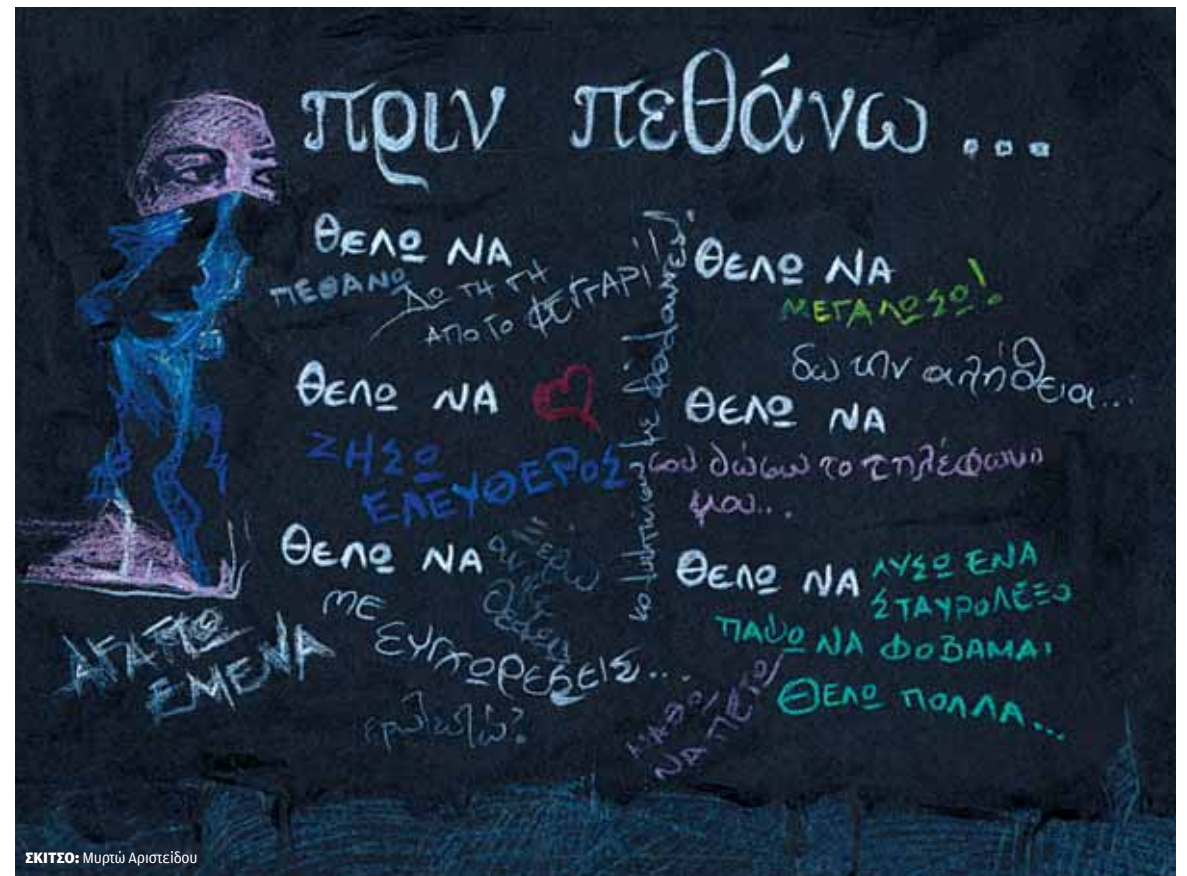 πριν πεθάνω...
ΘΕΛΩ ΝΑ
ΠΕΘΑΝΩ
ΔΩ ΤΗ ΓΗ
ΑΠΟ ΤΟ ΦΕΓΓΑΡΙ!
ΘΕΛΩ ΝΑ
ΖΗΣΩ
ΕΛΕΥΘΕΡΟΣ
ΘΕΛΩ ΝΑ
ΜΕ
ΣΥΓΧΩΡΕΣΕΙΣ...
ερωτευτώ?
ΑΓΑΠΩ
ΕΜΕΝΑ
ΘΕΛΩ ΝΑ
ΜΕΓΑΛΩΣΩ!
δω την αλήθεια...
ΘΕΛΩ ΝΑ
σου δώσω το τηλέφωνο
μου...
ΘΕΛΩ ΝΑ
ΛΥΣΩ ΕΝΑ
ΣΤΑΥΡΟΛΕΞΟ
ΠΑΨΩ ΝΑ ΦΟΒΑΜΑΙ
ΘΕΛΩ ΠΟΛΛΑ...
ΜΑΘΩ
ΝΑ ΠΕΤΩ
ΣΚΙΤΣΟ: Μυρτώ Αριστείδου